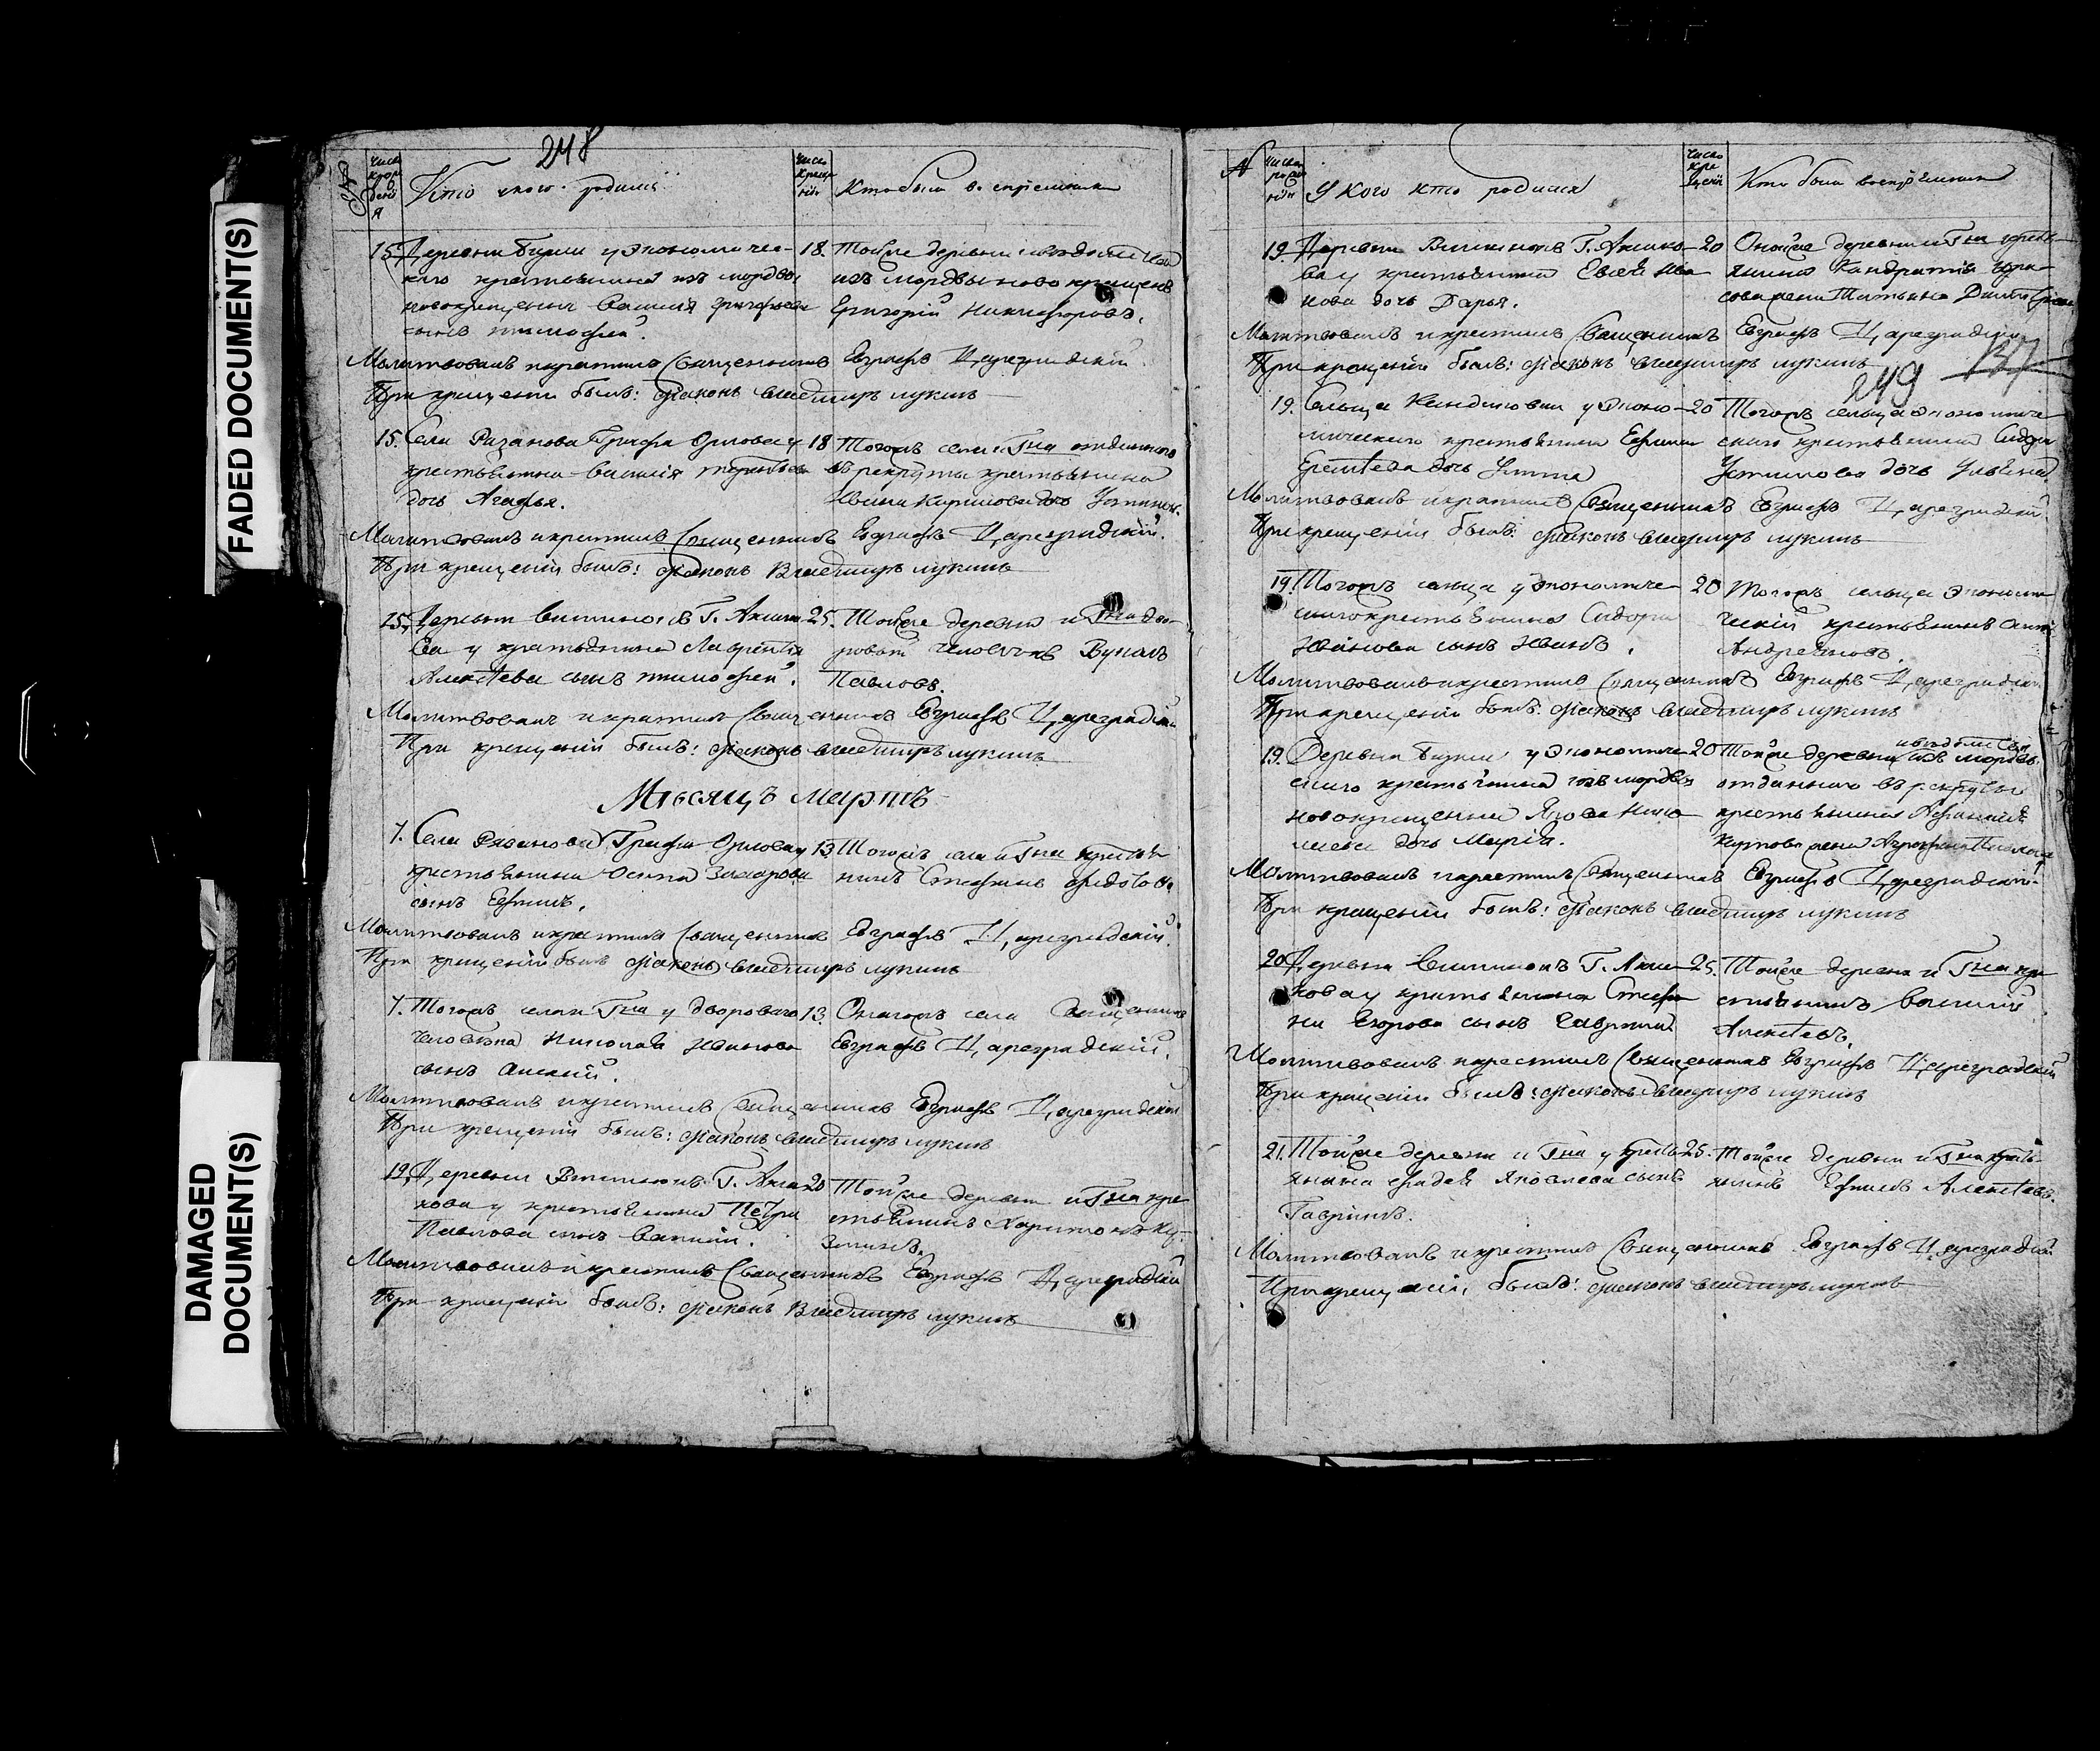 FADED DOCUMENT(S)
DAMAGED
DOCUMENT(S)
248
Число
рож
дені
я
Кто у кого родился
Число
Креще
нія
Кто были воспріемники
15. Деревни у экономичес-
каго крестьянина изъ мордвы
новокрещена Василія Григорьева
сынъ тимофей.
18. Тойже деревни
изъ мордвы новокрещенъ
Григорій Никифоровъ.
Молитвовалъ и крестилъ Священникъ Евграфъ Цареградскій.
При крещеніи былъ: дьяконъ владимиръ лукинъ
15. Села Рязанова Графа Орлова у
крестьянина Василія
дочь Агафья.
18 Тогожъ села и Гна отданнаго
въ рекруты крестьянина
Ивана Кирилова дочь
Молитвовалъ и крестилъ Священникъ Евграфъ Цареградскій.
При крещеніи былъ: дьяконъ Владимиръ лукинъ
15. Деревни Г. Аким-
ва у крестьянина Лаврентія
Алексѣева сынъ тимофей.
25. Тойже деревни и Гна дво-
ровой человѣкъ Вуколъ
Павловъ.
Молитвовалъ и крестилъ Священникъ Евграфъ Цареградскій
При крещеніи былъ: дьяконъ владимиръ лукинъ
Мѣсяцъ Мартъ
7. Села Рязанова Графа Орлова у
крестьянина Осипа Захарова
сынъ Ефимъ.
13 Тогожъ села и Гна крестья
нинъ Стефанъ Федотовъ
Молитвовалъ и крестилъ Священникъ Евграфъ Цареградскій.
При крещеніи былъ дьяконъ владимиръ лукинъ
7. Тогожъ села и Гна у двороваго
человѣка Николая Иванова
сынъ Алексій.
13. Онагожъ села Священникъ
Евграфъ Цареградскій.
Молитвовалъ и крестилъ Священникъ Евграфъ Цареградскій
При крещеніи былъ: дьяконъ владимиръ лукинъ
19. Деревни Г. Аки-
кова у крестьянина Петра
Павлова сынъ Василій.
20 Тойже деревни и Гна кре
стьянинъ Харитонъ Ку-
Молитвовалъ и крестилъ Священникъ Евграфъ Цареградскій
При крещеніи былъ: дьяконъ Владимиръ лукинъ
№
Число
рож
нія
У кого кто родился
Число
кре
щенія
Кто были воспріемники
19. Деревни Г. Акико-
ва у крестьянина Евсея Ива
нова дочь Дарья.
20 Онойже деревни и Гна кресть
янина Кандратія
жена Татьяна
Молитвовалъ и крестилъ Священникъ Евграфъ Цареградскій
При крещеніи былъ: дьяконъ владимиръ лукинъ
137
249
19. Сельца у эконо-
мическаго крестьянина Ефима
дочь
20 Тогожъ сельца экономиче
скаго крестьянина Сидора
дочь Ульяна
Молитвовалъ и крестилъ Священникъ Евграфъ Цареградскій.
При крещеніи былъ: дьяконъ владимиръ лукинъ
19. Тогожъ сельца у экономиче
скаго крестьянина Сидора
Иванова сынъ Иванъ.
20 Тогожъ сельца экономи
ческій крестьянинъ
Андреяновъ.
Молитвовалъ и крестилъ Священникъ Евграфъ Цареградскій
При крещеніи былъ: дьяконъ владимиръ лукинъ
19. Деревни у экономиче
скаго крестьянина изъ мордвы
новокрещена Якова
дочь Марія.
20 Тойже деревни изъ мордвы
отданнаго въ рекруты
крестьянина
жена
Молитвовалъ и крестилъ Священникъ Евграфъ Цареградскій.
При крещеніи былъ: дьяконъ владимиръ лукинъ
20. Деревни Г. Аки-
кова у крестьянина Стефа
на Егорова сынъ Гавріилъ
25. Тойже деревни и Гна кре
стьянинъ Василій
Алексѣевъ.
Молитвовалъ и крестилъ Священникъ Евграфъ Цареградскій
При крещеніи былъ: дьяконъ владимиръ лукинъ
21. Тойже деревни и Гна у кресть
янина Фадея Яковлева сынъ
Гавріилъ.
25. Тойже деревни и Гна кресть
янинъ Ефимъ Алексѣевъ.
Молитвовалъ и крестилъ Священникъ Евграфъ Цареградскій
При крещеніи былъ: дьяконъ владимиръ лукинъ